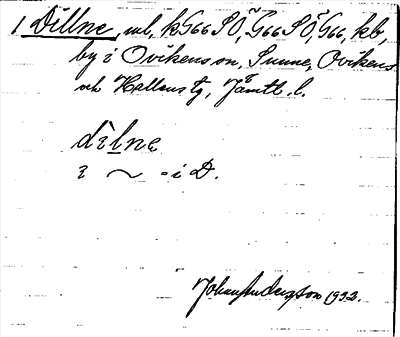 1 Dillne, ml, kG66SÖ, G66SÖ, G66, kb,
by i Ovikens sn, Sunne, Ovikens
och Hallens tg, Jämtl. l.
dìlne
i ~ = i D.
Johan Andersson 1932.